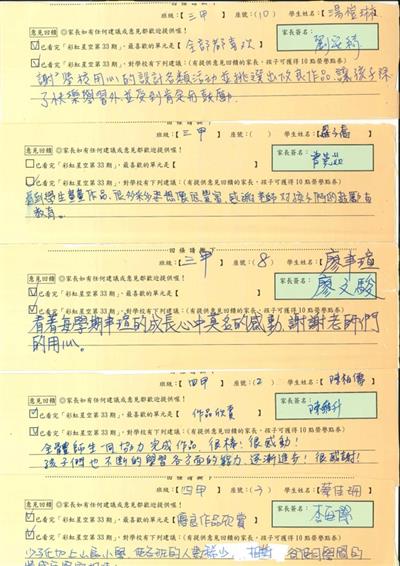 班級：【三甲】 座號：(10) 學生姓名：湯
意見回饋 ◎家長如有任何建議或意見都歡迎提供喔！ 家長簽名：
已看完「彩虹星空第33期」，最喜歡的單元是【全部都喜歡】
已看完「彩虹星空第33期」，對學校有下列建議：(有提供意見回饋的家長，孩子可獲得10點榮譽點券)
謝謝學校用心的設計各類活動並挑選出次良作品，讓孩子除
了快樂學習外並受到肯定與鼓勵.
班級：【三甲】 座號：( ) 學生姓名：
意見回饋 ◎家長如有任何建議或意見都歡迎提供喔！ 家長簽名：
已看完「彩虹星空第33期」，最喜歡的單元是【 】
已看完「彩虹星空第33期」，對學校有下列建議：(有提供意見回饋的家長，孩子可獲得10點榮譽點券)
看到學生畫畫作品，很多 豐富，感謝老師對孩子們的鼓勵與
教育。
回條請撕下
班級：【三甲】 座號：(8) 學生姓名：廖聿瑄
意見回饋 ◎家長如有任何建議或意見都歡迎提供喔！ 家長簽名：廖文駿
已看完「彩虹星空第33期」，最喜歡的單元是【 】
已看完「彩虹星空第33期」，對學校有下列建議：(有提供意見回饋的家長，孩子可獲得10點榮譽點券)
看著每學期聿瑄的成長心中莫名的感動，謝謝老師們
的用心。
回條請撕下
班級：【四甲】 座號：(2) 學生姓名：陳柏
意見回饋 ◎家長如有任何建議或意見都歡迎提供喔！ 家長簽名：陳
已看完「彩虹星空第33期」，最喜歡的單元是【作品欣賞】
已看完「彩虹星空第33期」，對學校有下列建議：(有提供意見回饋的家長，孩子可獲得10點榮譽點券)
全體師生同協力完成作品，很棒！很感動！
孩子們也不斷的學習各方面的能力，逐漸進步！很感謝！
班級：【四甲】 座號：(3) 學生姓名：蔡佳
意見回饋 ◎家長如有任何建議或意見都歡迎提供喔！ 家長簽名：李
已看完「彩虹星空第33期」，最喜歡的單元是【優良作品欣賞】
已看完「彩虹星空第33期」，對學校有下列建議：(有提供意見回饋的家長，孩子可獲得10點榮譽點券)